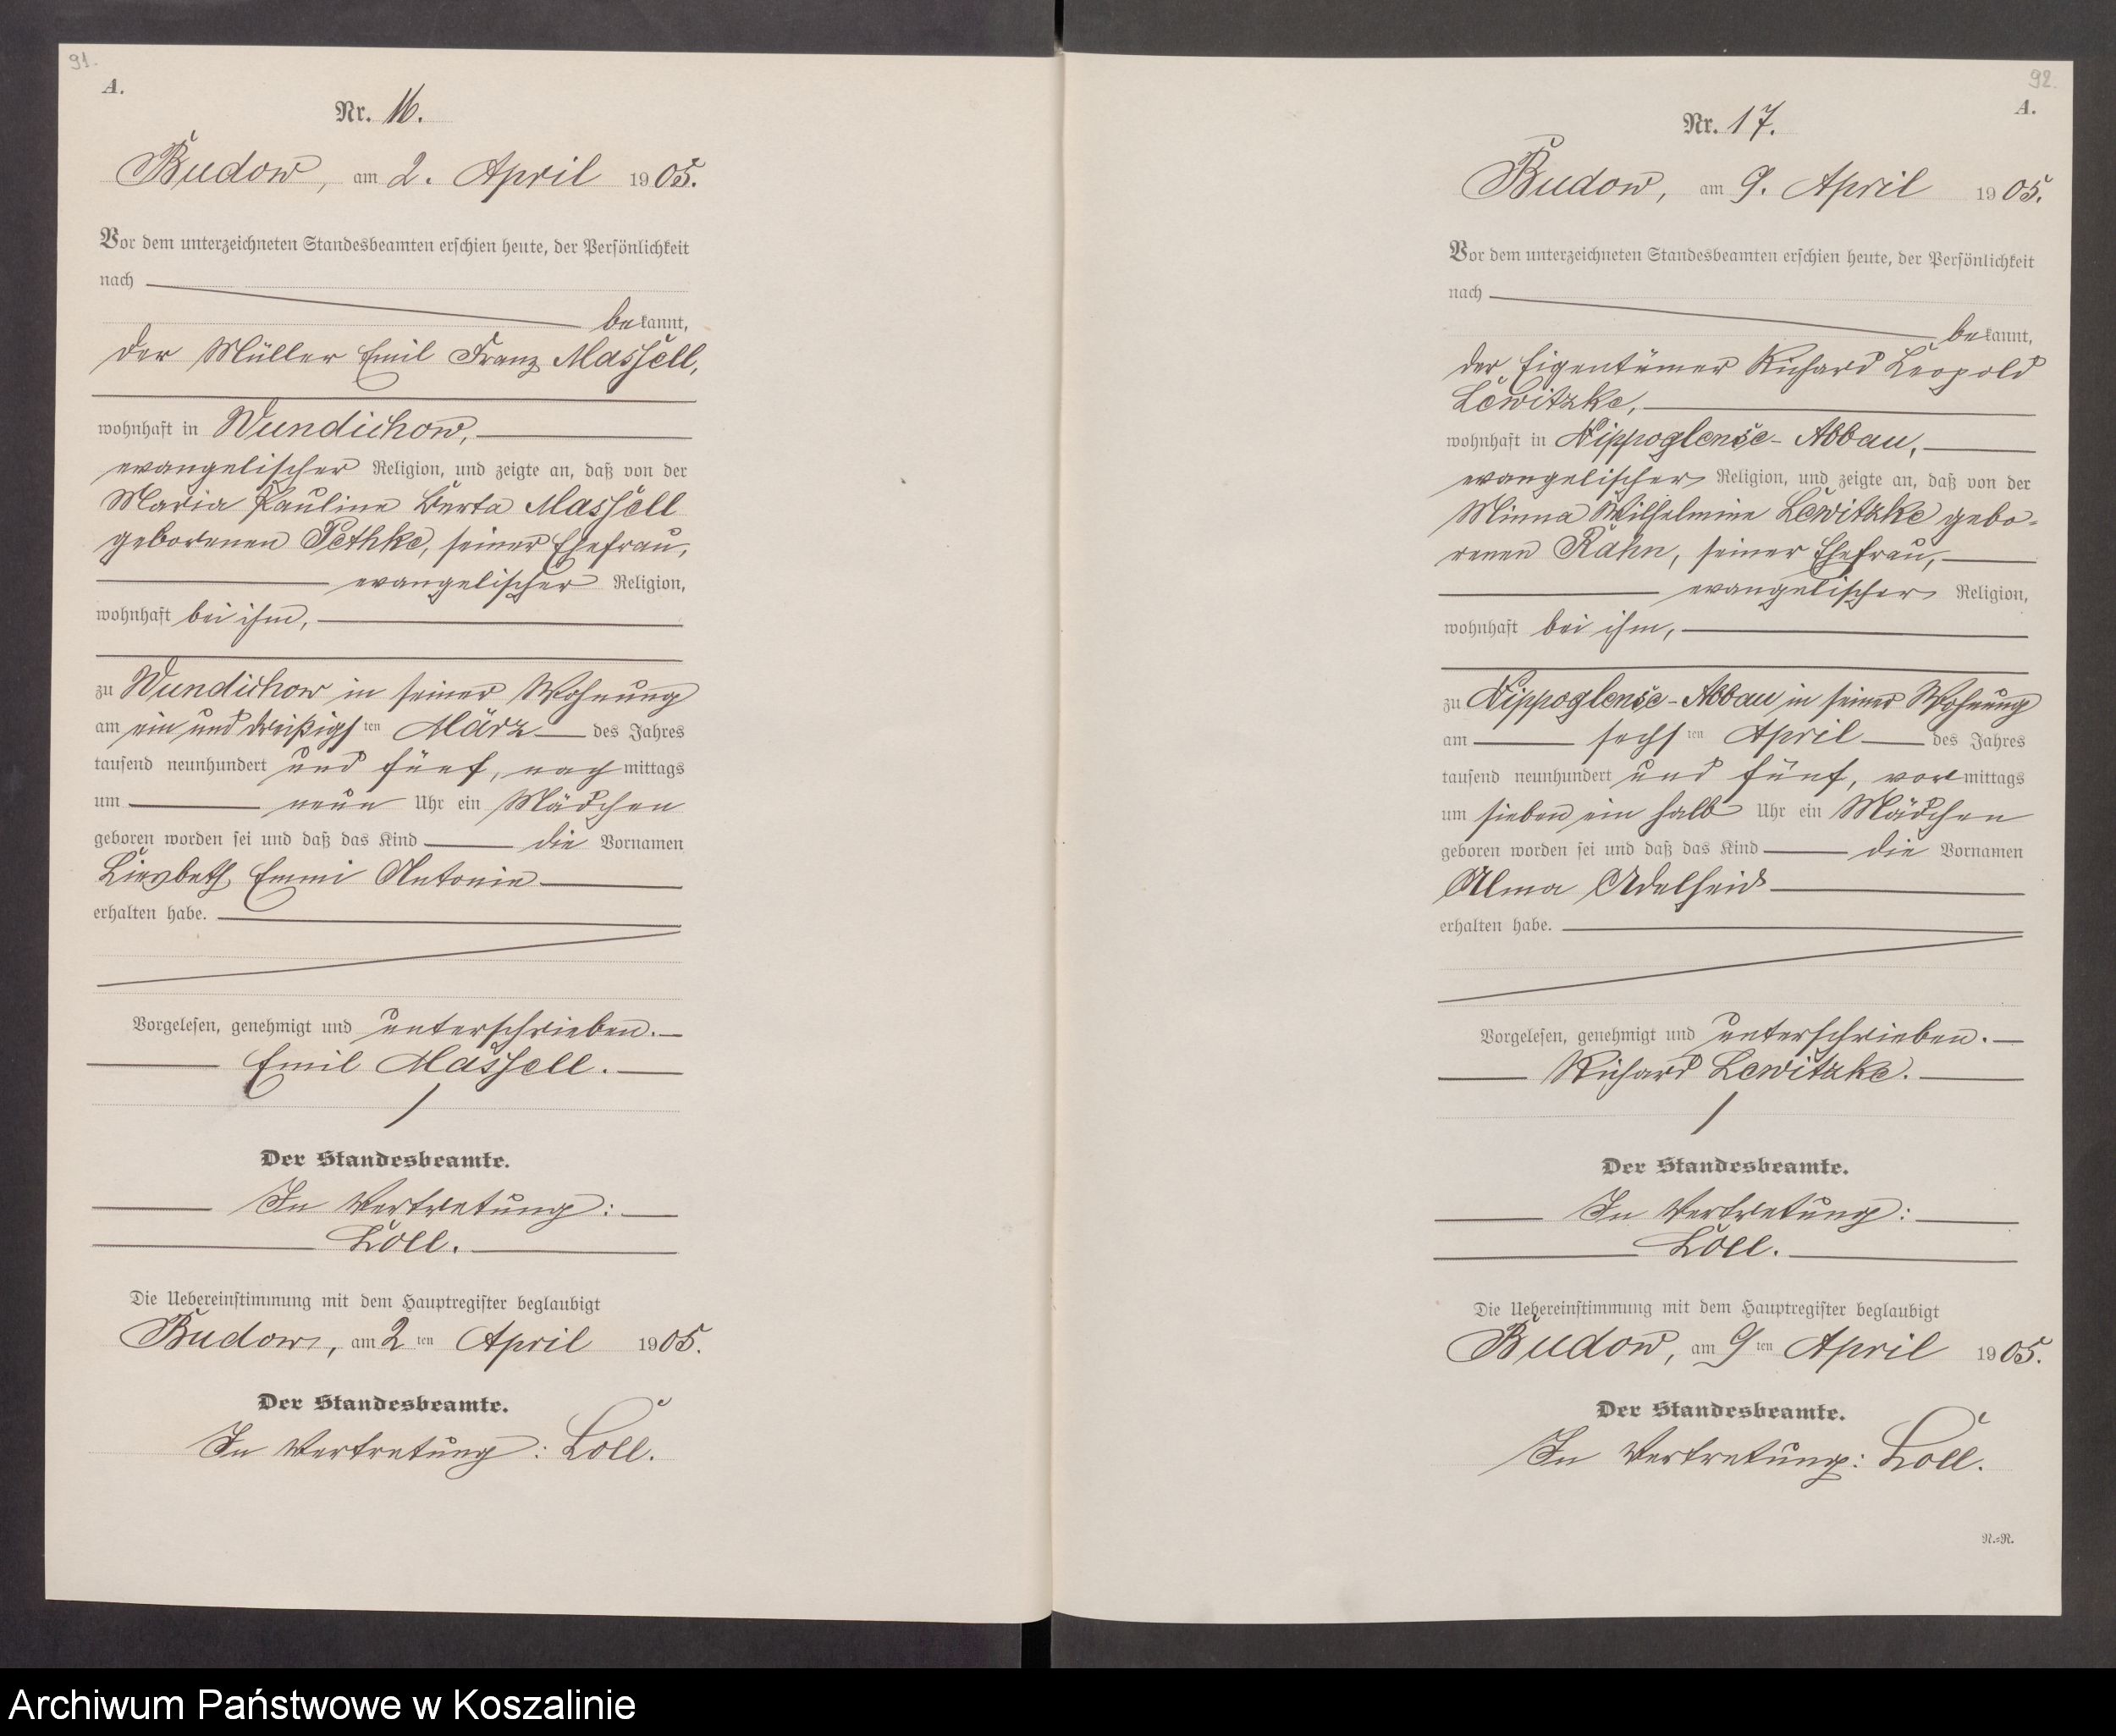 91.
A.
Nr. 16.
Budow, am 2. April 1905.
Vor dem unterzeichneten Standesbeamten erschien heute, der Persönlichkeit
nach
bekannt,
der Müller Emil Franz Massell,
wohnhaft in Wundichow,
evangelischer Religion, und zeigte an, daß von der
Maria Pauline Berta Massell
geborenen Pethke, seiner Ehefrau,
evangelischer Religion,
wohnhaft bei ihm,
zu Wundichow in seiner Wohnung
am ein und dreißigsten März des Jahres
tausend neunhundert und fünf, nachmittags
um neun Uhr ein Mädchen
geboren worden sei und daß das Kind die Vornamen
Liesbeth Emmi Antonie
erhalten habe.
Vorgelesen, genehmigt und unterschrieben.
Emil Massell.
Der Standesbeamte.
In Vertretung:
Loll.
Die Uebereinstimmung mit dem Hauptregister beglaubigt
Budow, am 2ten April 1905.
Der Standesbeamte.
In Vertretung: Loll.
92.
A.
Nr. 17.
Budow, am 9. April 1905.
Vor dem unterzeichneten Standesbeamten erschien heute, der Persönlichkeit
nach
bekannt,
der Eigentümer Richard Leopold
Lewitzke,
wohnhaft in Nippoglense-Abbau,
evangelischer Religion, und zeigte an, daß von der
Minna Wilhelmine Lewitzke gebo-
renen Rahn, seiner Ehefrau,
evangelischer Religion,
wohnhaft bei ihm,
zu Nippoglense-Abbau in seiner Wohnung
am sechsten April des Jahres
tausend neunhundert und fünf, vormittags
um sieben ein halb Uhr ein Mädchen
geboren worden sei und daß das Kind die Vornamen
Alma Adelheid
erhalten habe.
Vorgelesen, genehmigt und unterschrieben.
Richard Lewitzke.
Der Standesbeamte.
In Vertretung:
Loll.
Die Uebereinstimmung mit dem Hauptregister beglaubigt
Budow, am 9ten April 1905.
Der Standesbeamte.
In Vertretung: Loll.
N.=R.
Archiwum Państwowe w Koszalinie